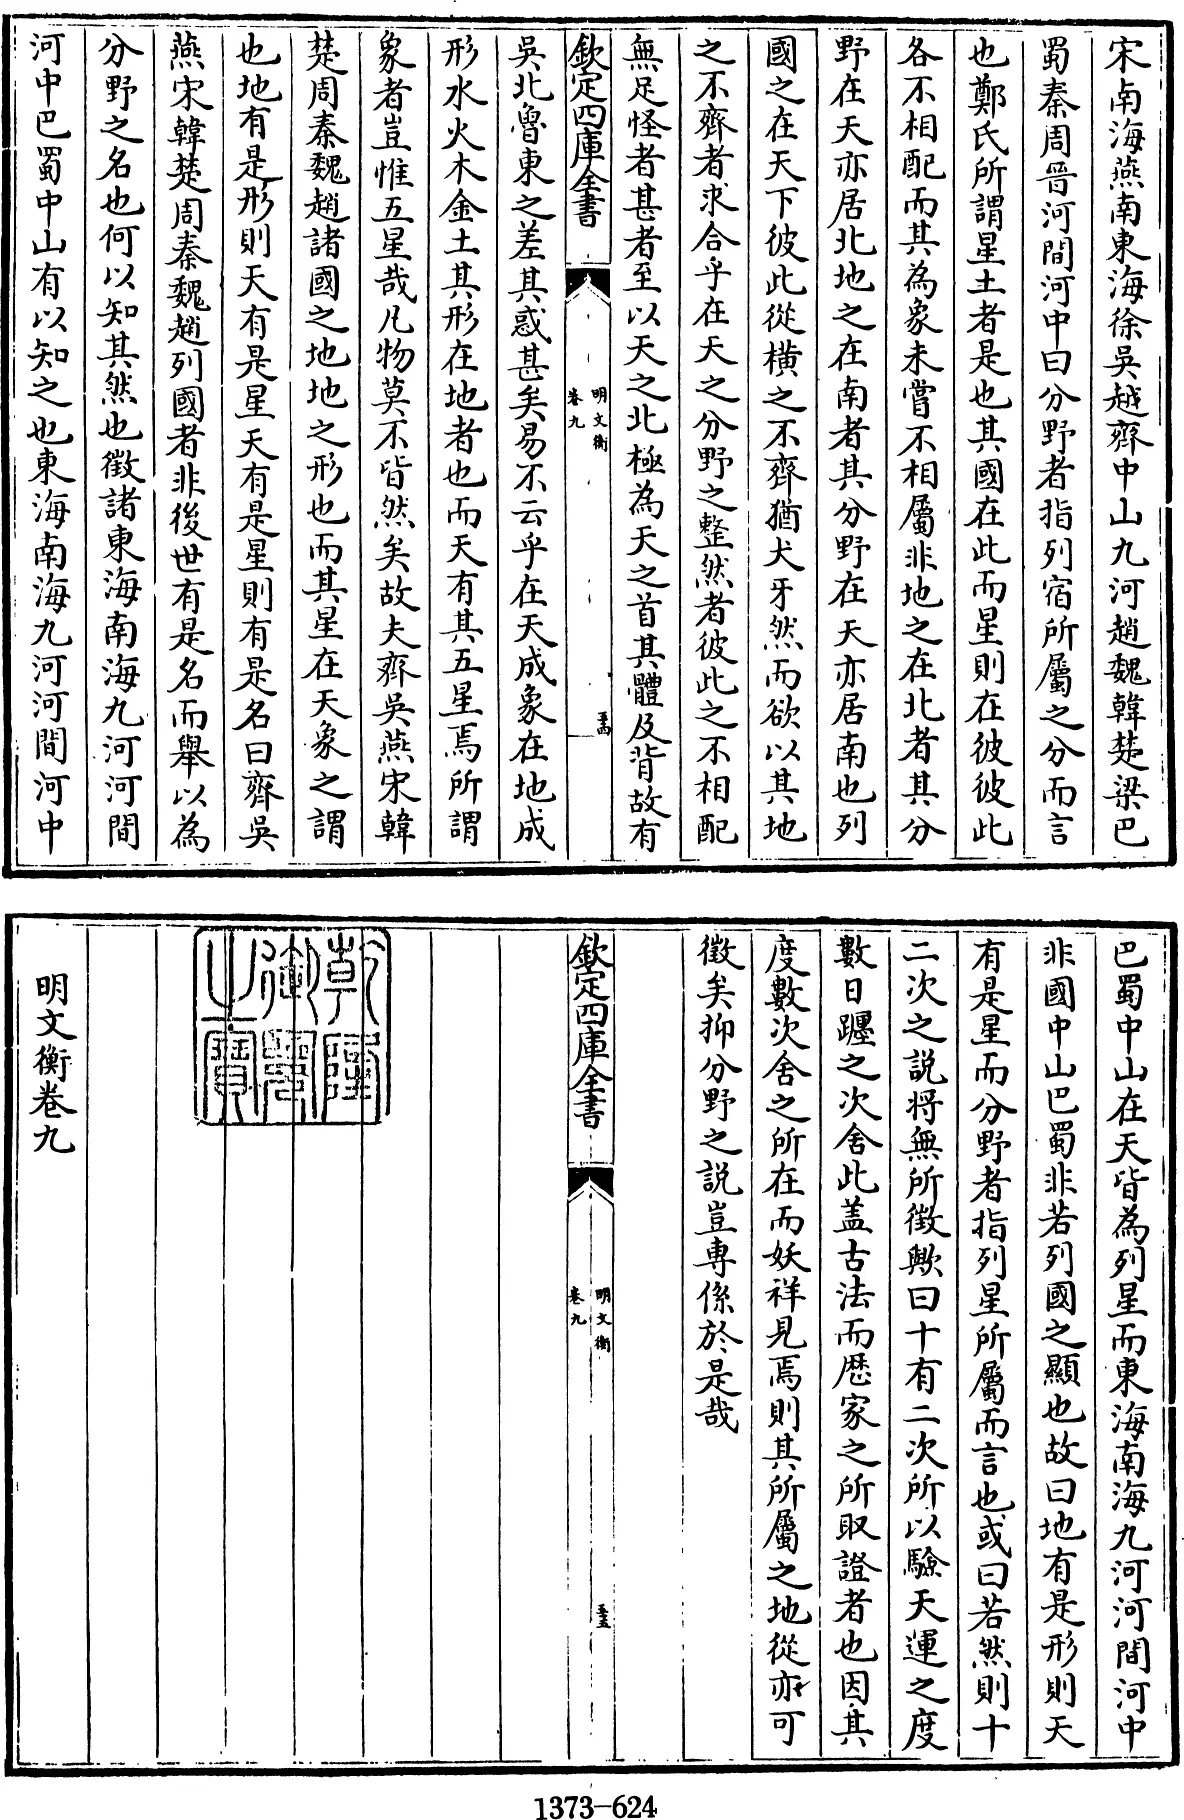 宋南海燕南東海徐吳越齊中山九河趙魏韓楚梁巴
蜀秦周晉河間河中曰分野者指列宿所屬之分而言
也鄭氏所謂星土者是也其國在此而星則在彼彼此
各不相配而其為象未嘗不相屬非地之在北者其分
野在天亦居北地之在南者其分野在天亦居南也列
國之在天下彼此從橫之不齊猶犬牙然而欲以其地
之不齊者求合乎在天之分野之整然者彼此之不相配
無足怪者甚者至以天之北極為天之首其體及背故有
欽定四庫全書
明文衡
卷九
五十四
吳北魯東之差其惑甚矣易不云乎在天成象在地成
形水火木金土其形在地者也而天有其五星焉所謂
象者豈惟五星哉凡物莫不皆然矣故夫齊吳燕宋韓
楚周秦魏趙諸國之地地之形也而其星在天象之謂
也地有是形則天有是星天有是星則有是名曰齊吳
燕宋韓楚周秦魏趙列國者非後世有是名而舉以為
分野之名也何以知其然也徵諸東海南海九河河間
河中巴蜀中山有以知之也東海南海九河河間河中
巴蜀中山在天皆為列星而東海南海九河河間河中
非國中山巴蜀非若列國之顯也故曰地有是形則天
有是星而分野者指列星所屬而言也或曰若然則十
二次之說將無所徵歟曰十有二次所以驗天運之度
數日躔之次舍此蓋古法而厯家之所取證者也因其
度數次舍之所在而妖祥見焉則其所屬之地從亦可
徵矣抑分野之說豈專係於是哉
欽定四庫全書
明文衡
卷九
五十五
乾隆
御覽
之寶
明文衡卷九
1373-624